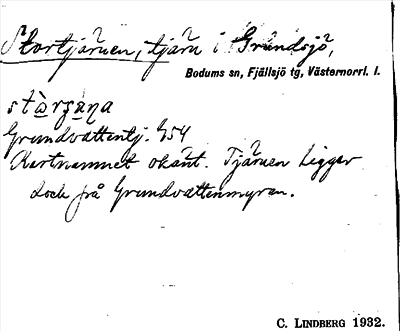 Stortjärnen, tjärn i Grundsjö,
Bodums sn, Fjällsjö tg, Västernorrl. l.
Grundvattentj. G54
Kartnamnet okänt. Tjärnen ligger
dock på Grundvattenmyren.
C. LINDBERG 1932.